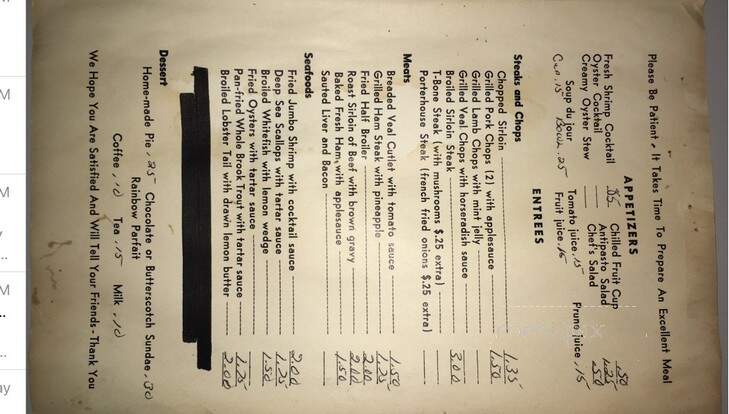 Please Be Patient, It Takes Time To Prepare An Excellent Meal
APPETIZERS
Fresh Shrimp Cocktail .85 Chilled Fruit Cup .50
Oyster Cocktail Antipasto Salad 1.25
Creamy Oyster Stew Chef's Salad .50
Soup du jour Tomato juice .15 Prune juice .15
Cup .15 Bowl .25 Fruit juice .15
ENTREES
Steaks and Chops
Chopped Sirloin 1.35
Grilled Pork Chops (2) with applesauce 1.50
Grilled Lamb Chops with mint jelly
Grilled Veal Chops with horseradish sauce
Broiled Sirloin Steak 3.00
T-Bone Steak (with mushrooms $.25 extra)
Porterhouse Steak (french fried onions $.25 extra)
Meats
Breaded Veal Cutlet with tomato sauce 1.50
Grilled Ham Steak with pineapple 1.25
Fried Half Broiler 2.00
Roast Sirloin of Beef with brown gravy 2.00
Baked Fresh Ham, with applesauce 1.50
Sauted Liver and Bacon
Seafoods
Fried Jumbo Shrimp with cocktail sauce 2.00
Deep Sea Scallops with tartar sauce 1.25
Broiled Whitefish with lemon wedge 1.50
Fried Oysters with tartar sauce
Pan-fried Whole Brook Trout with tartar sauce 1.25
Broiled Lobster Tail with drawn lemon butter 2.00
Dessert
Home-made Pie .25 Chocolate or Butterscotch Sundae .30
Rainbow Parfait
Coffee .10 Tea .15 Milk .10
We Hope You Are Satisfied And Will Tell Your Friends - Thank You